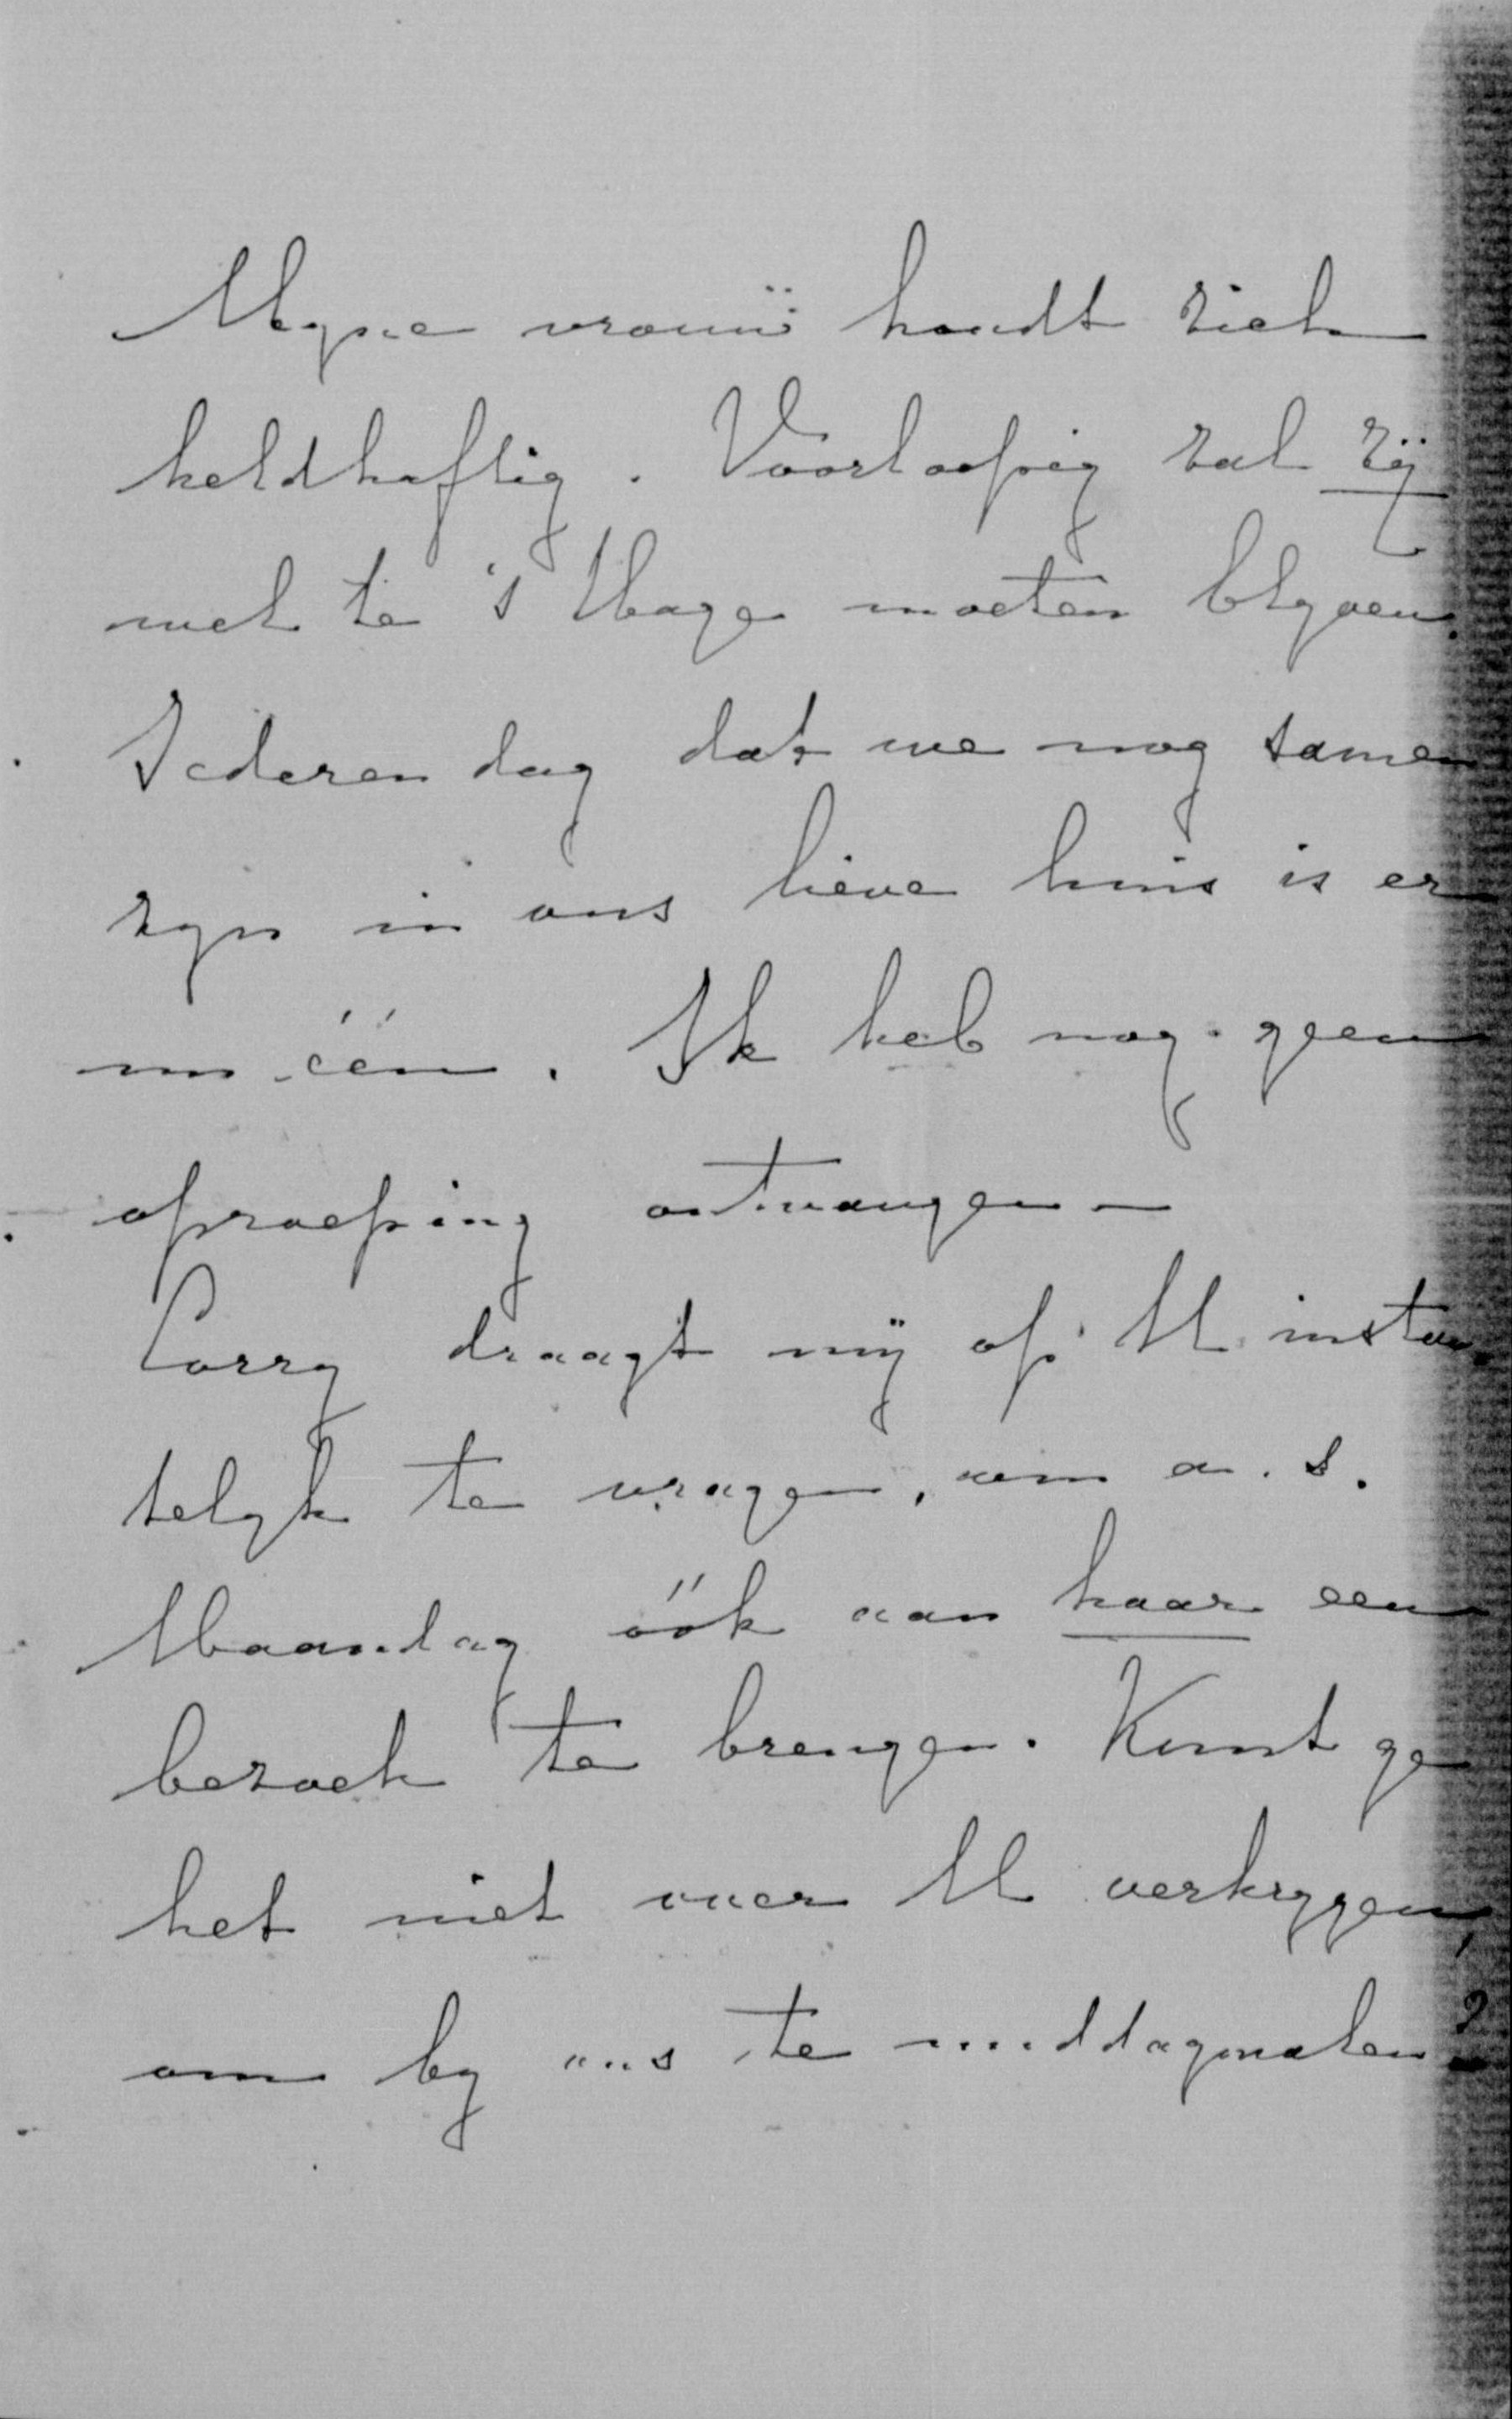 Myne vrouw houdt zich
heldhaftig. Voorloopig zal zij
wel te 's Hage moeten blyven.
Iederen dag dat we nog samen
zyn in ons lieve huis is er
nu één. Ik heb nog geen
oproeping ontvangen —
Corry draagt mij op U instan-
telyk te vragen, om a. s.
Maandag óók aan haar een
bezoek te brengen. Kunt ge
het niet over U verkrygen,
om by ons te middagmalen?